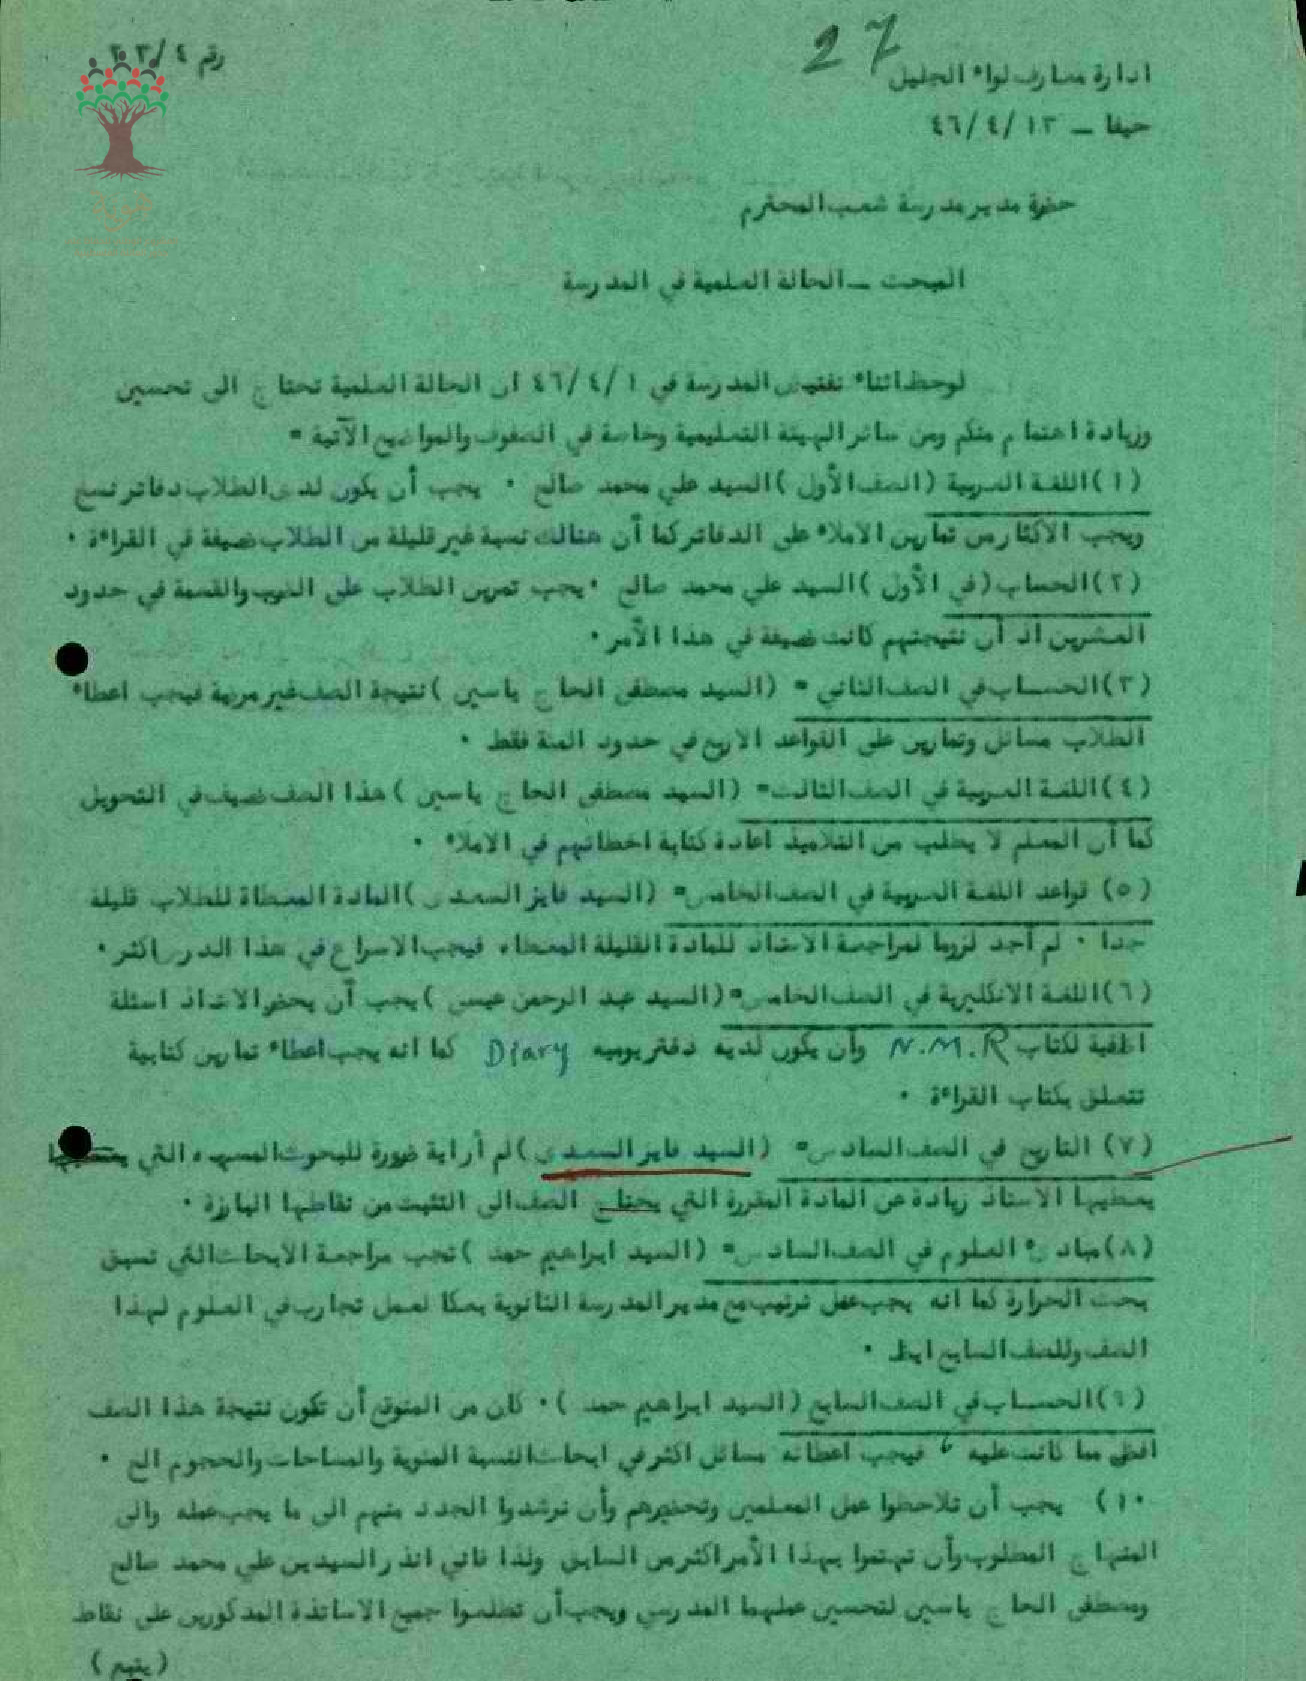 27
رقم ٣٠٣/٤
ادارة معارف لواء الجليل
حيفا ــ ١٣/٤/٤٦
حضرة مدير مدرسة شعب المحترم
المبحث ــ الحالة العلمية في المدرسة
لوحظ اثناء تفتيش المدرسة في ٤٦/٤/١ ان الحالة العلمية تحتاج الى تحسين
وزيادة اهتمام منكم ومن سائر الهيئة التعليمية وخاصة في الصفوف والمواضيع الآتية =
(١) اللغة العربية (الصف الأول) السيد علي محمد صالح ٠ يجب أن يكون لدى الطلاب دفاتر نسخ
ويجب الاكثار من تمارين الاملاء على الدفاتر كما أن هنالك نسبة غير قليلة من الطلاب ضعيفة في القراءة ٠
(٢) الحساب (في الأول) السيد علي محمد صالح ٠ يجب تمرين الطلاب على الضرب والقسمة في حدود
العشرين اذ أن نتيجتهم كانت ضعيفة في هذا الأمر ٠
(٣) الحساب في الصف الثاني = (السيد مصطفى الحاج ياسين) نتيجة الصف غير مرضية فيجب اعطاء
الطلاب مسائل وتمارين على القواعد الاربع في حدود المئة فقط ٠
(٤) اللغة العربية في الصف الثالث = (السيد مصطفى الحاج ياسين) هذا الصف ضعيف في التحويل
كما أن المعلم لا يطلب من التلاميذ اعادة كتابة اخطائهم في الاملاء ٠
(٥) قواعد اللغة العربية في الصف الخامس = (السيد فايز السعدى) المادة المعطاة للطلاب قليلة
جدا ٠ لم أجد لزوما لمراجعة الاستاذ للمادة القليلة المعطاه فيجب الاسراع في هذا الدرس اكثر ٠
(٦) اللغة الانكليزية في الصف الخامس = (السيد عبد الرحمن عيسى) يجب أن يحضر الاستاذ اسئلة
اضافية لكتاب N.M.R وأن يكون لديه دفتر يوميه Diary كما انه يجب اعطاء تمارين كتابية
تتعلق بكتاب القراءة ٠
(٧) التاريخ في الصف السادس = (السيد فايز السعدى) لم أر اية ضرورة للبحوث المسهبه التي
يعطيها الاستاذ زيادة عن المادة المقررة التي يحتاج الصف الى التثبت من نقاطها البارزة ٠
(٨) مبادىء العلوم في الصف السادس = (السيد ابراهيم حمد) تجب مراجعة الابحاث التي تسبق
بحث الحرارة كما انه يجب عمل ترتيب مع مدير المدرسة الثانوية بعكا لعمل تجارب في العلوم لهذا
الصف وللصف السابع ايضا ٠
(٩) الحساب في الصف السابع (السيد ابراهيم حمد) ٠ كان من المتوقع أن تكون نتيجة هذا الصف
افضل مما كانت عليه ، فيجب اعطائه مسائل اكثر في ابحاث النسبة المئوية والمساحات والحجوم الخ ٠
١٠) يجب أن تلاحظوا عمل المعلمين وتحضيرهم وأن ترشدوا الجدد منهم الى ما يجب عمله والى
المنهاج المطلوب وأن تهتموا بهذا الأمر اكثر من السابق ولذا فاني انذر السيدين علي محمد صالح
ومصطفى الحاج ياسين لتحسين عملهما المدرسي ويجب أن تطلعوا جميع الاساتذة المذكورين على نقاط
(يتبع)